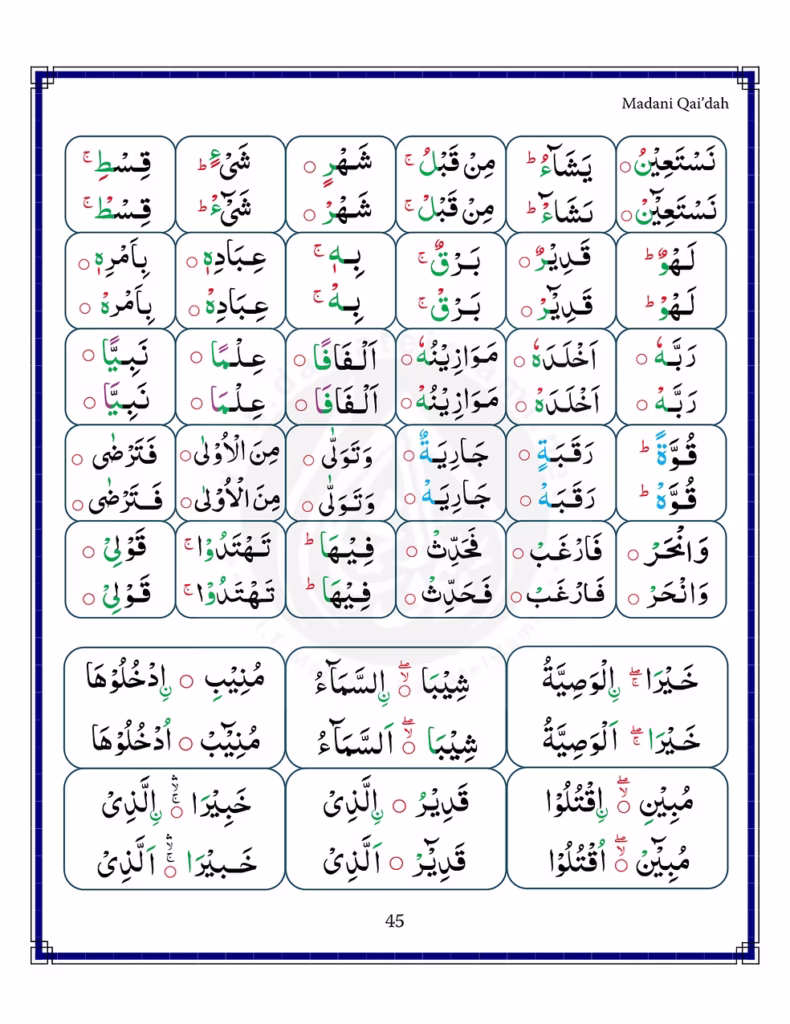 Madani Qai’dah
نَسْتَعِیْنُ ○ یَشَآءُ ؕ مِنْ قَبْلُ ۚ شَهْرٍ ○ شَیْءٍ ؕ قِسْطِ ۚ
نَسْتَعِیْٓنْ ○ نَشَآءْ ؕ مِنْ قَبْلْ ۚ شَهْرْ ○ شَیْٓءْ ؕ قِسْطْ ۚ
لَهْوٌ ؕ قَدِیْرٌ ○ بَرْقٌ ۚ بِهٖ ۚ عِبَادِهٖ ○ بِاَمْرِهٖ ○
لَهْوْ ؕ قَدِیْٓرْ ○ بَرْقْ ۚ بِهْ ۚ عِبَادِهْ ○ بِاَمْرِهْ ○
رَبَّهٗ ○ اَخْلَدَهٗ ○ مَوَازِیْنُهٗ ○ اَلْفَافًا ○ عِلْمًا ○ نَبِیًّا ○
رَبَّهْ ○ اَخْلَدَهْ ○ مَوَازِیْنُهْ ○ اَلْفَافَا ○ عِلْمَا ○ نَبِیَّا ○
قُوَّةً ؕ رَقَبَةٍ ○ جَارِیَةٌ ○ وَتَوَلّٰی ○ مِنَ الْاُوْلٰی ○ فَتَرْضٰی ○
قُوَّهْ ؕ رَقَبَهْ ○ جَارِیَهْ ○ وَتَوَلّٰی ○ مِنَ الْاُوْلٰی ○ فَتَرْضٰی ○
وَانْحَرْ ○ فَارْغَبْ ○ فَحَدِّثْ ○ فِیْهَا ؕ تَهْتَدُوْا ۚ قَوْلِیْ ○
وَانْحَرْ ○ فَارْغَبْ ○ فَحَدِّثْ ○ فِیْهَا ؕ تَهْتَدُوْا ۚ قَوْلِیْ ○
خَیْرَا ۖۚ نِالْوَصِیَّةُ شِیْبَا ۣۖ○ نِالسَّمَآءُ مُنِیْبِ ○ نِادْخُلُوْهَا
خَیْرَا ۖۚ اَلْوَصِیَّةُ شِیْبَا ۣۖ○ اَلسَّمَآءُ مُنِیْٓبْ ○ اُدْخُلُوْهَا
مُبِیْنِ ○ۙۖ نِاقْتُلُوْا قَدِیْرُ ○ نِالَّذِیْ خَبِیْرَا ○ۚۛ نِالَّذِیْ
مُبِیْٓنْ ○ۙۖ اُقْتُلُوْا قَدِیْٓرْ ○ اَلَّذِیْ خَبِیْرَا ○ۚۛ اَلَّذِیْ
45